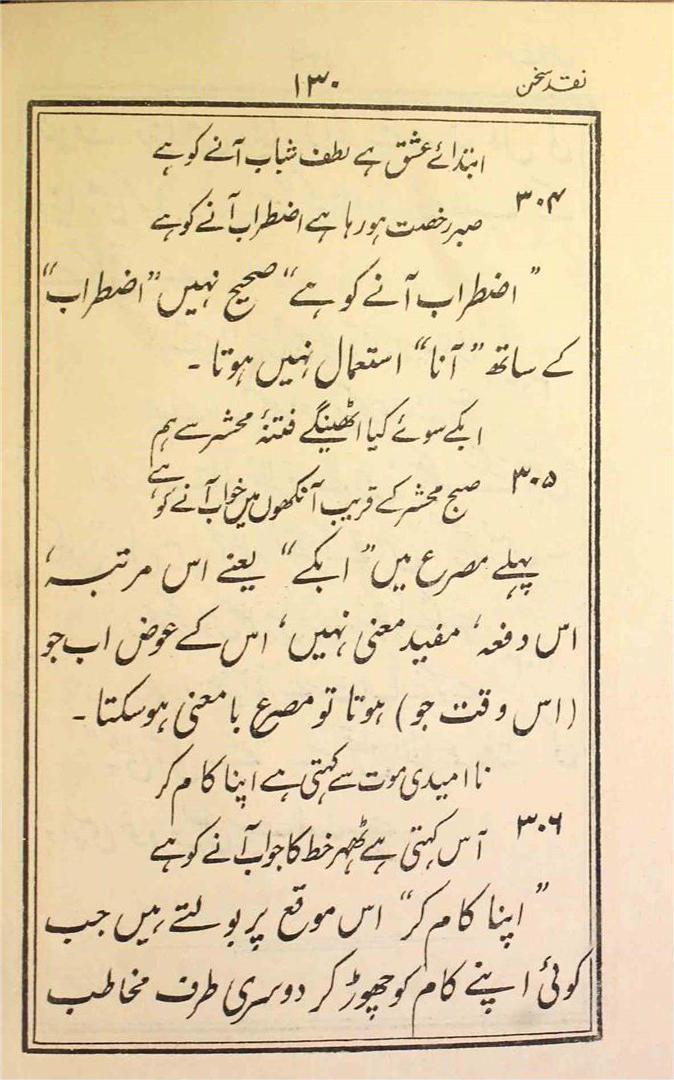 نقد سخن
۱۳۰
ابتدائے عشق ہے لطف شباب آنے کو ہے
۳۰۴
صبر رخصت ہو رہا ہے اضطراب آنے کو ہے
”اضطراب آنے کو ہے“ صحیح نہیں ”اضطراب“
کے ساتھ ”آنا“ استعمال نہیں ہوتا ۔
ابکے سوئے کیا اٹھینگے فتنۂ محشر سے ہم
۳۰۵
صبح محشر کے قریب آنکھوں میں خواب آنے کو ہے
پہلے مصرع میں ”ابکے“ یعنے اس مرتبہ،
اس دفعہ، مفید معنی نہیں، اس کے عوض اب جو
(اس وقت جو) ہوتا تو مصرع با معنی ہو سکتا ۔
نا امیدی موت سے کہتی ہے اپنا کام کر
۳۰۶
آس کہتی ہے ٹھہر خط کا جواب آنے کو ہے
”اپنا کام کر“ اس موقع پر بولتے ہیں جب
کوئی اپنے کام کو چھوڑ کر دوسری طرف مخاطب